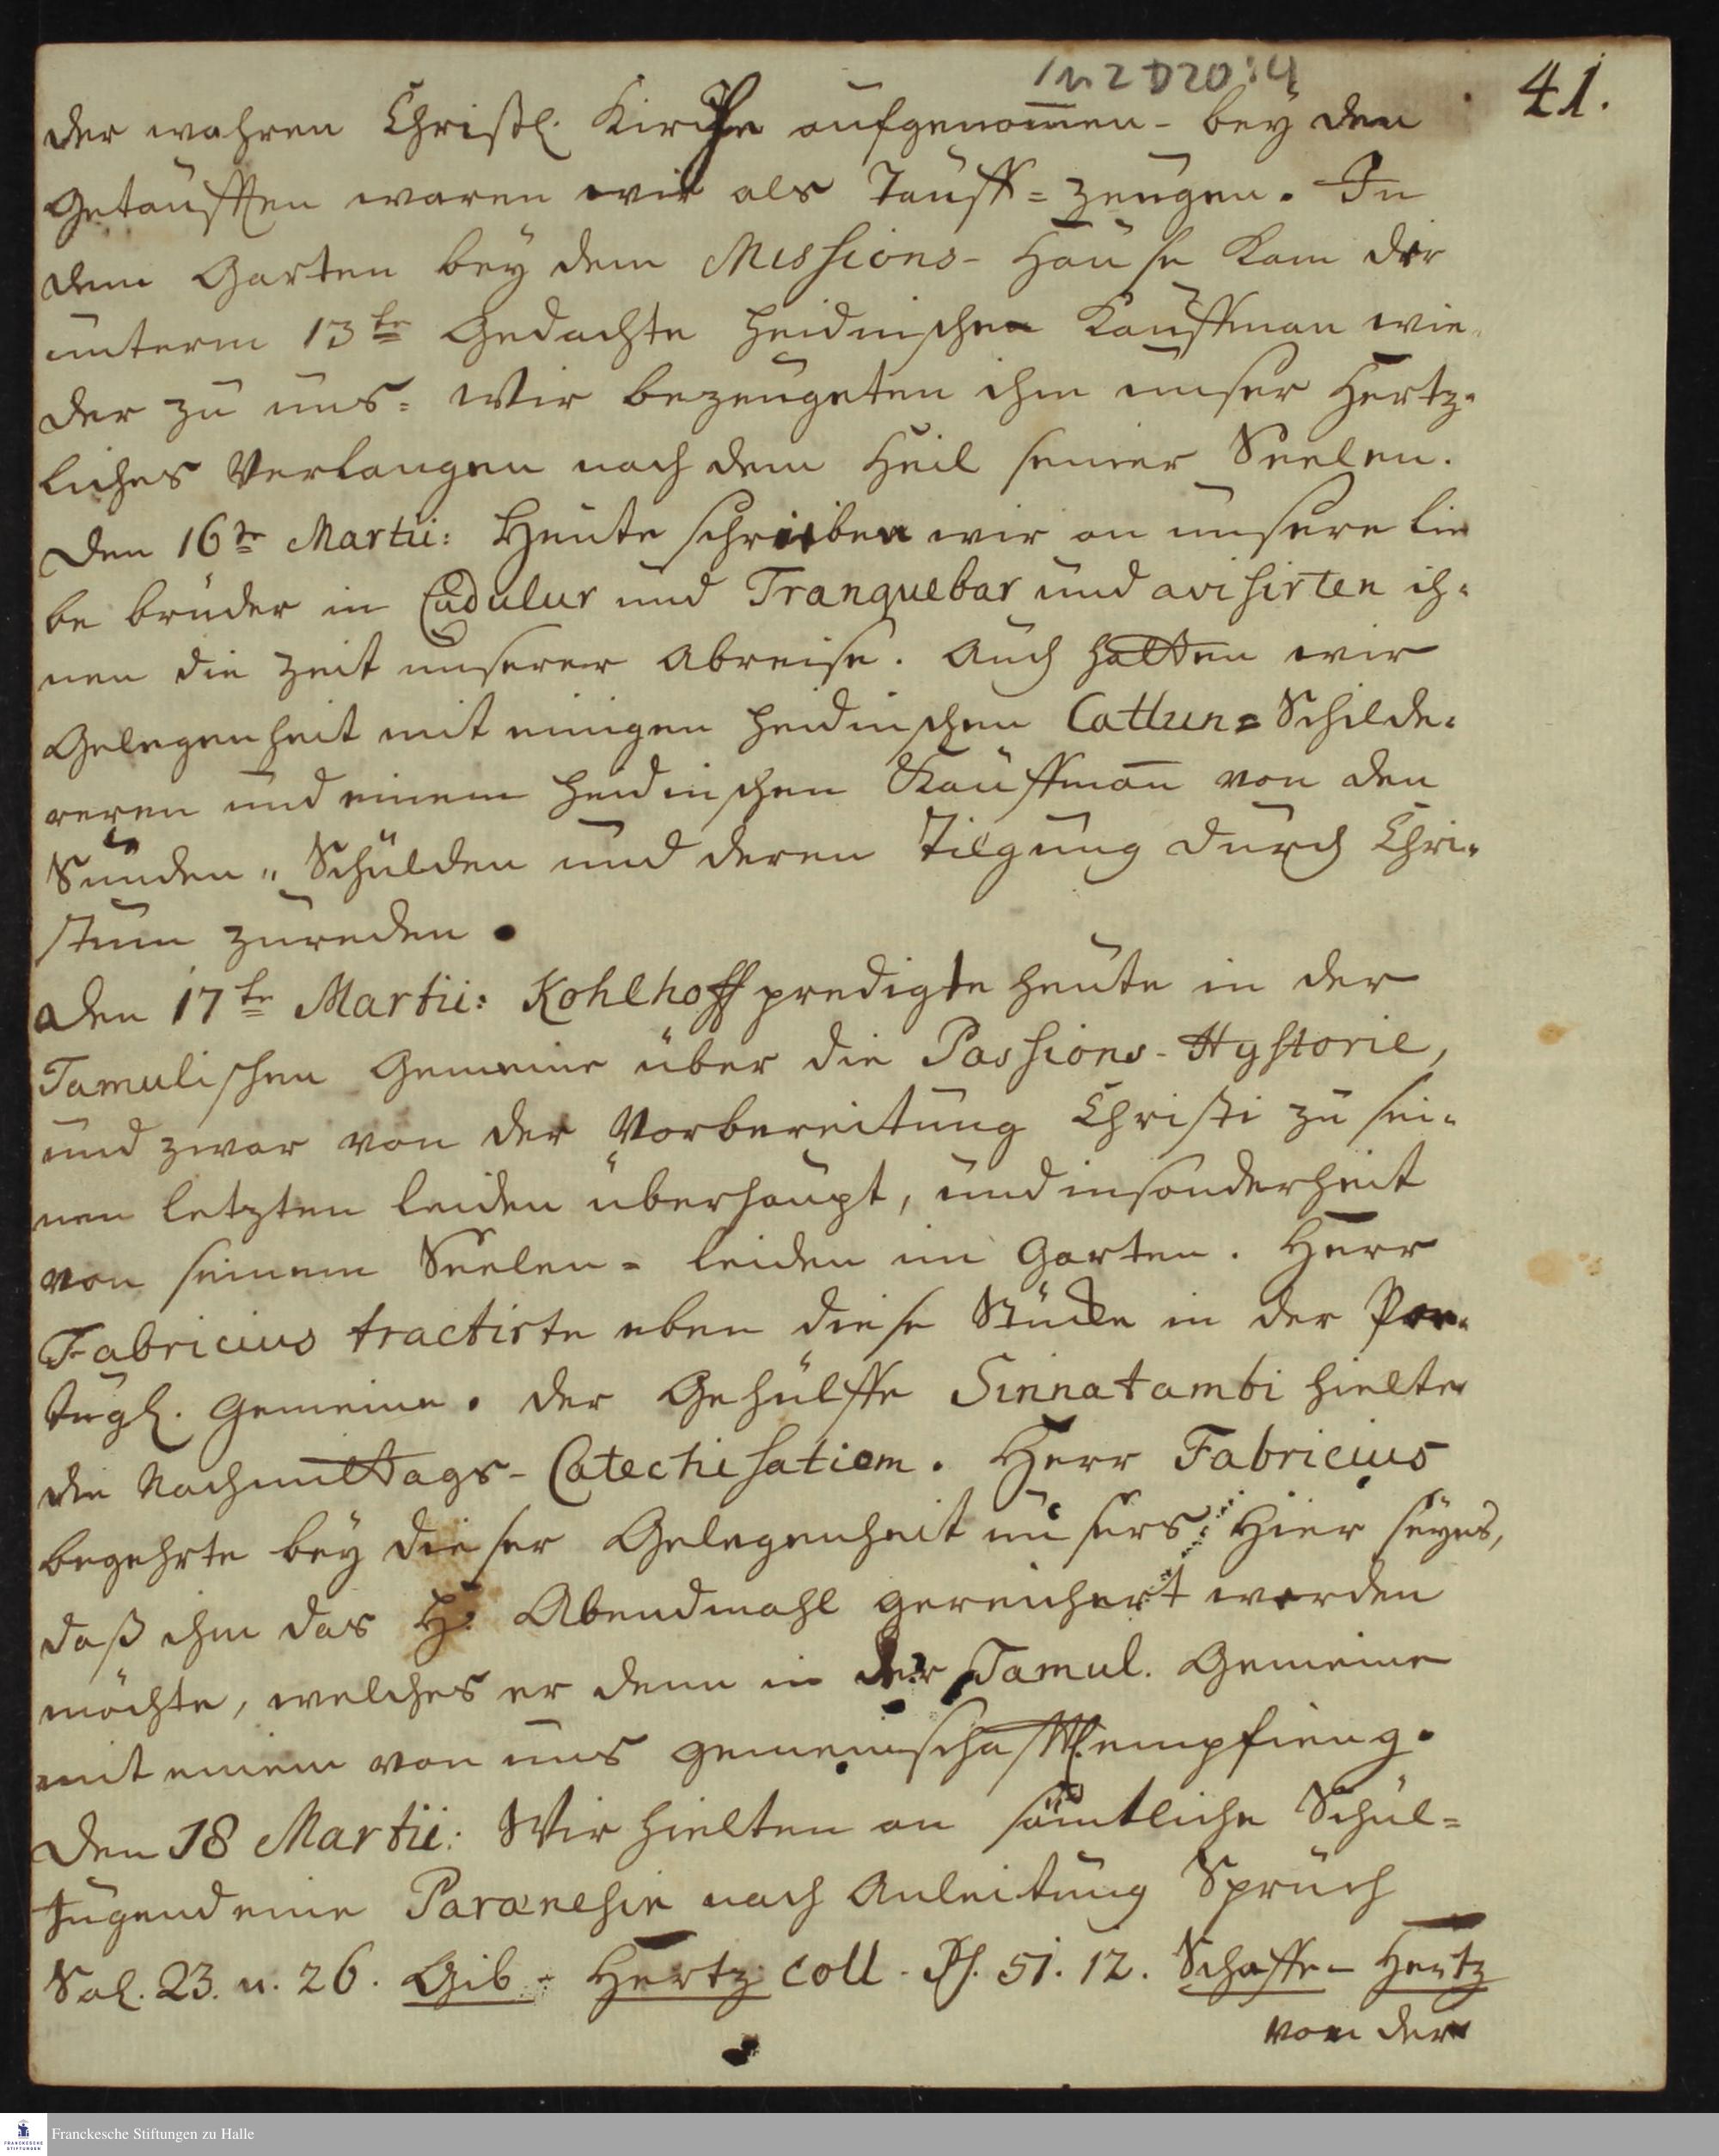 1 M 2 D 20 : 4
41.
der wahren Christl. Kirche aufgenom̅en - bey den
Getaufften waren wir als Tauff=zeugen. In
dem Garten bey dem Missions-Hause kam der
unterm 13te Gedachte heidnischen Kauffman wie-
der zu uns. Wir bezeugeten ihm unser Hertz-
liches Verlangen nach dem Heil seiner Seelen.
Den 16te Martii: Heute schrieben wir an unsere lie
be brüder in Cudulur und Tranquebar und avisirten ih-
nen die Zeit unserer Abreise. Auch hatten wir
Gelegenheit mit einigen heidnischen Cattun=Schilde-
reren und einem heidnischen Kauffman̅ von den
Sünden" Schulden und deren Tilgung durch Chri-
stum zureden.
Den 17te Martii: Kohlhoff predigte heute in der
Tamulischen Gemeine über die Passions-Hystorie,
und zwar von der Vorbereitung Christi zu sei-
nen letzten leiden überhaupt, und insonderheit
von seinem Seelen-leiden im Garten. Herr
Fabricius tractirte eben diese Stücke in der Por-
tugl. Gemeine. der Gehülffe Sinnatambi hielte
die Nachmittags-Catechisation. Herr Fabricius
begehrte bey dieser Gelegenheit unsers Hier seyns,
daß ihm das H. Abendmahl gereichert werden
möchte, welches er denn in der Tamul. Gemeine
mit einem von uns gemeinschafftl. empfieng.
Den 18 Martii: Wir hielten an sämtliche Schul=
Jugend eine Paraenesin nach Anleitung Spruch
Sal. 23. u. 26. Gib - Hertz coll. Ps. 51. 12. Schaffe - Hertz
von der
Franckesche Stiftungen zu Halle